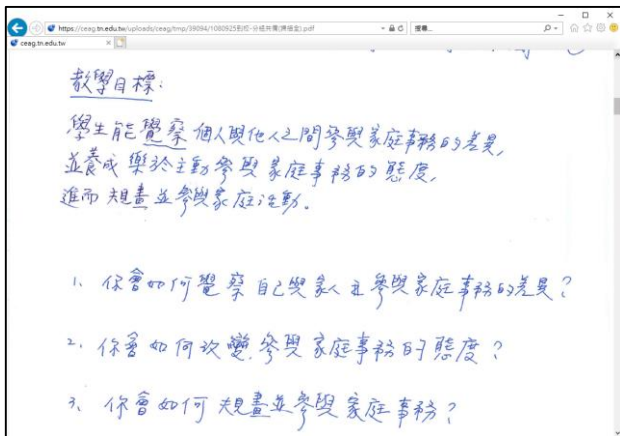 https://ceag.tn.edu.tw/uploads/ceag/tmp/39094/1080925到校-分組共備(揆憶宣).pdf
搜尋...
ceag.tn.edu.tw
教學目標:
學生能覺察個人與他人之間參與家庭事務的差異,
並養成樂於主動參與家庭事務的態度,
進而規畫並參與家庭活動。
1、你會如何覺察自己與家人在參與家庭事務的差異?
2、你會如何改變參與家庭事務的態度?
3、你會如何規畫並參與家庭事務?